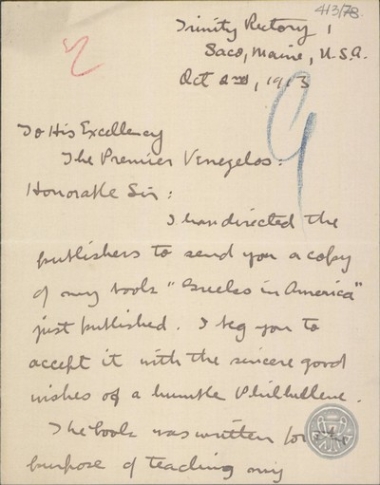 413/78
Trinity Rectory,
Saco, Maine, U.S.A.
Oct 2nd, 1913
To His Excellency
The Premier Venezelos:
Honorable Sir:
I have directed the
publishers to send you a copy
of my book "Greeks in America"
just published. I beg you to
accept it with the sincere good
wishes of a humble Philhellene.
The book was written for the
purpose of teaching my